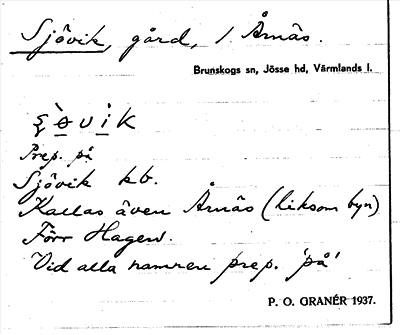 Sjövik, gård, i Årnäs.
Brunskogs sn, Jösse hd, Värmlands l.
Prep. på
Sjövik kb.
Kallas även Årnäs (liksom byn)
Förr Hagen.
Vid alla namnen prep. 'på'
P. O. GRANÉR 1937.